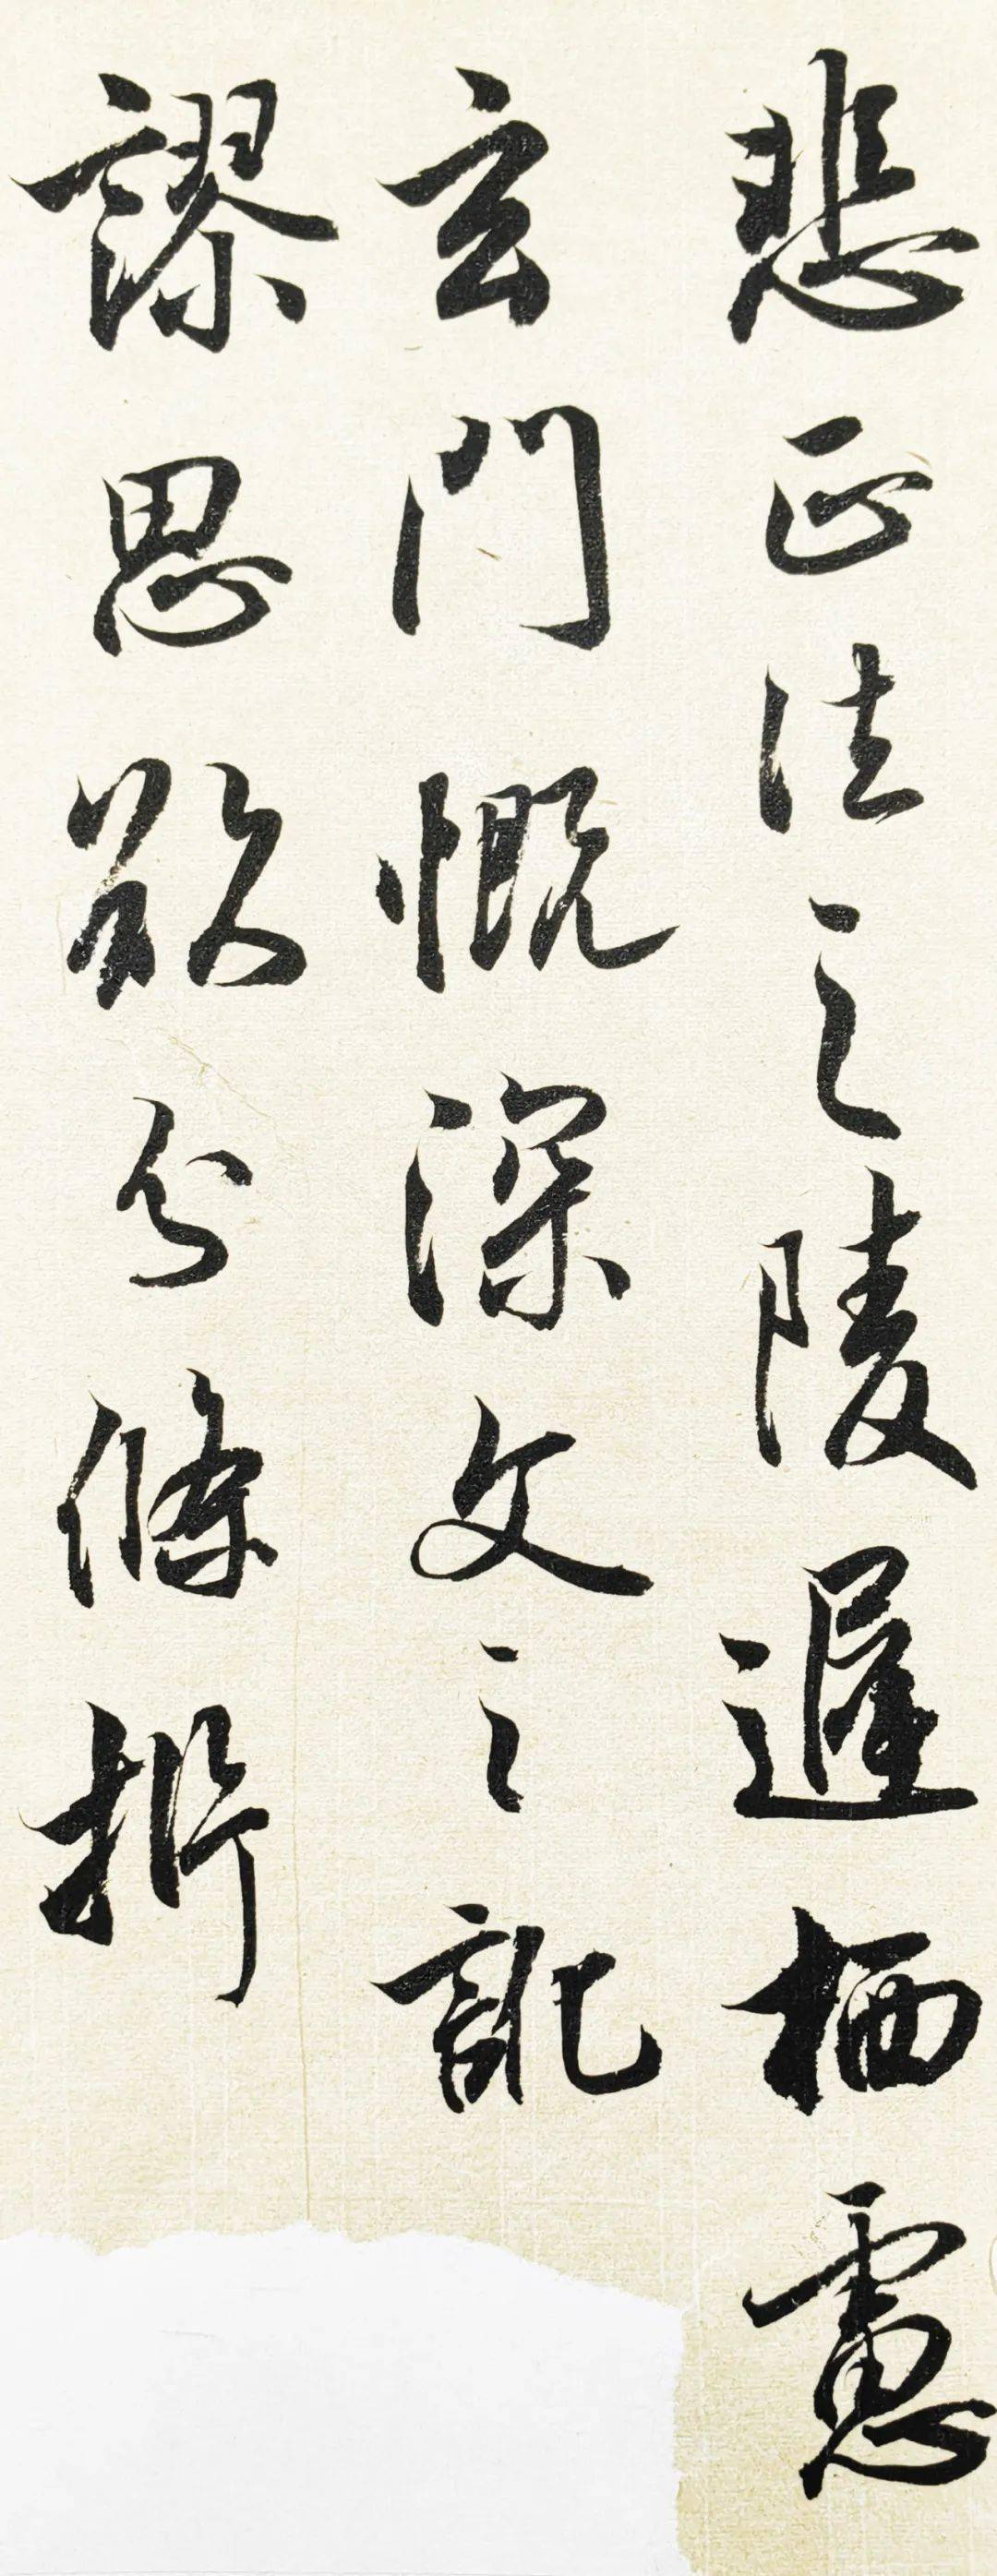 悲正法之陵遲栖慮
玄門慨深文之訛
謬思欲分條析